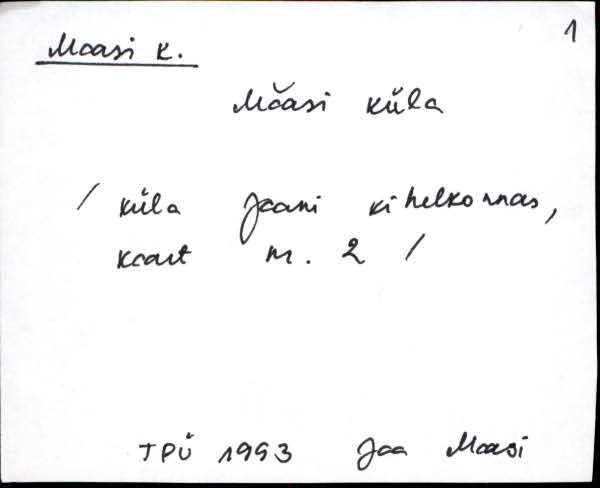 1
Maasi k.
Mǒasi küla
/ küla Jaani kihelkonnas,
kaart nr. 2 /
TPÜ 1993 Jaa Maasi